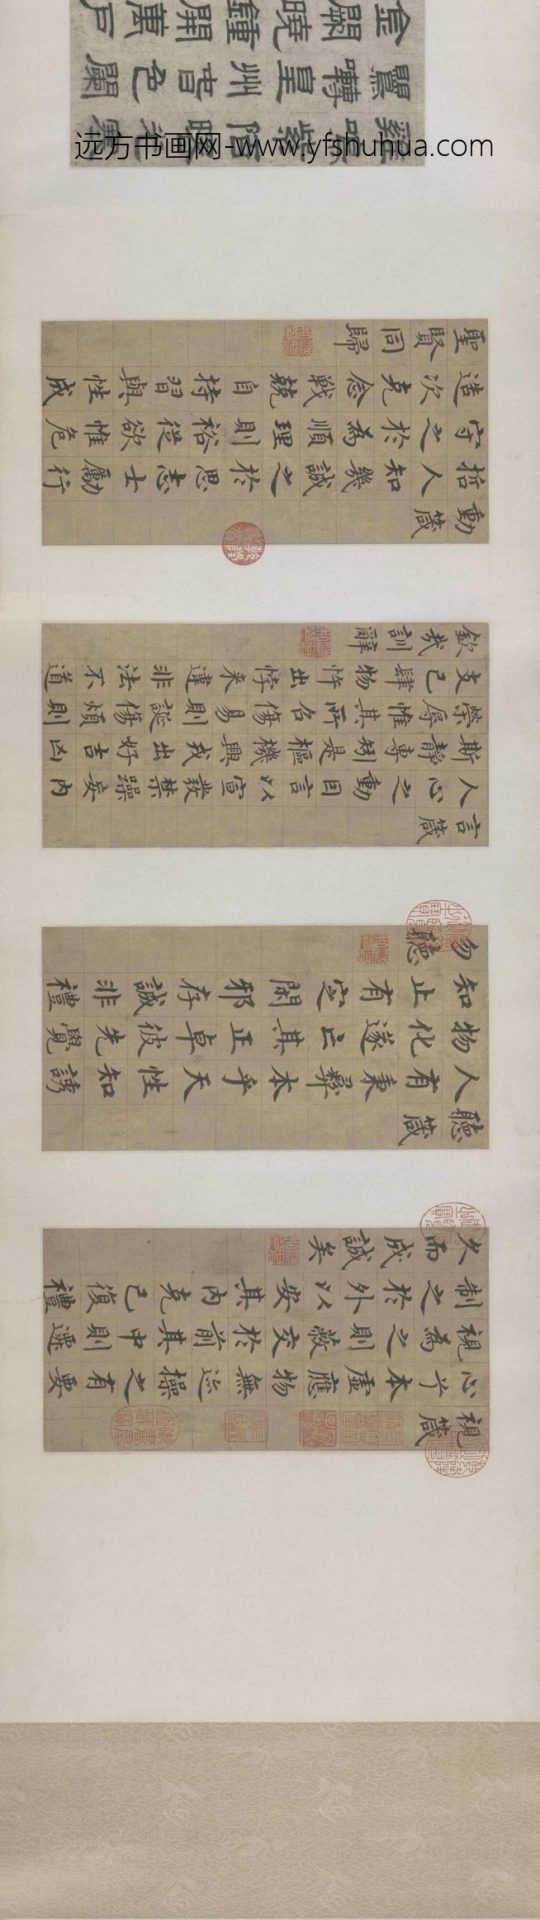 視箴
心兮本虛應物無迹操之有要
視為之則蔽交於前其中則遷
制之於外以安其內克己復禮
久而成誠矣
聽箴
人有秉彝本乎天性知誘
物化遂亡其正卓彼先覺
知止有定閑邪存誠非禮
勿聽
言箴
人心之動因言以宣發禁躁妄內
斯靜專矧是樞機興戎出好吉凶
榮辱惟其所召傷易則誕傷煩則
支己肆物忤出悖來違非法不道
欽哉訓辭
動箴
哲人知幾誠之於思志士勵行
守之於為順理則裕從欲惟危
造次克念戰兢自持習與性成
聖賢同歸
雞鳴紫陌曙光寒
鶯囀皇州春色闌
金闕曉鐘開萬戶
远方书画网-www.yfshuhua.com